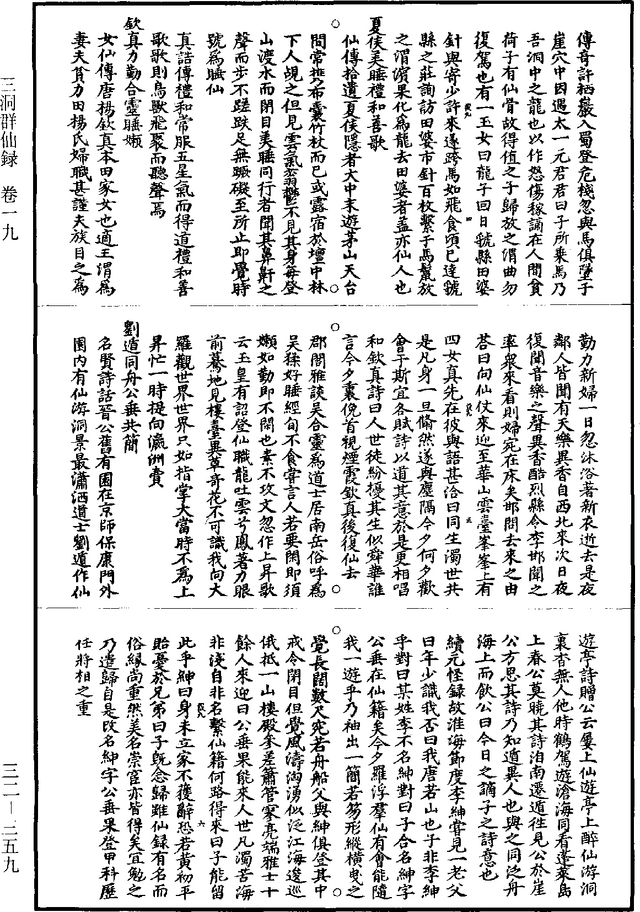 三洞群仙録　卷一九
傳奇許栖巖入蜀登危棧忽與馬俱墜于
崖穴中因遇太一元君君曰子所乘馬乃
吾洞中之龍也以作怨傷稼謫在人間負
荷子有仙骨故得值之子歸放之渭曲勿
復駕也有一玉女曰龍子回日虢縣田婆
針與寄少許來遂跨馬如飛食頃已達虢
縣之莊詢訪田婆市針百枚繫于馬鬣放
之渭濱果化為龍去田婆者蓋亦仙人也
夏侯美睡禮和善歌
仙傳拾遺夏侯隱者大中末遊茅山天台
間常携布囊竹杖而已或露宿於壇中林
下人覘之但見雲氣蓊鬱不見其身每登
山渡水而閉目美睡同行者聞其鼻鼾之
聲而步不蹉跌足無蹶礙至所止即覺時
號為睡仙
真誥傳禮和常服五星氣而得道禮和善
歌歌則鳥獸飛聚而聽聲焉
欽真力勤合靈睡嬾
女仙傳唐楊欽真本田家女也適王渭為
妻夫貧力田楊氏婦職甚謹夫族目之為
勤力新婦一日忽沐浴著新衣逝去是夜
鄰人皆聞有天樂異香自西北來次日夜
復聞音樂之聲異香酷烈縣令李邯聞之
率衆來看則婦宛在床矣邯問去來之由
荅曰向仙仗來迎至華山雲臺峯峯上有
四女真先在彼與語甚洽曰同生濁世共
是凡身一旦翛然遂與塵隔今夕何夕歡
會于斯宜各賦詩以道其意於是更相唱
和欽真詩曰人世徒紛擾其生似舜華誰
言今夕裏俛首視煙霞欽真後復仙去
郡閣雅談吳合靈為道士居南岳俗呼為
吳猱好睡經旬不食嘗言人若要閑即須
嬾如勤即不閑也素不攻文忽作上昇歌
云玉皇有詔登仙職龍吐雲兮鳳著力眼
前驀地見樓臺異草奇花不可識我向大
羅觀世界世界只如指掌大當時不為上
昇忙一時提向瀛洲賣
劉遁同舟公垂共簡
名賢詩話晉公舊有園在京師保康門外
園内有仙游洞景最瀟洒道士劉遁作仙
遊亭詩贈公云屢上仙遊亭上醉仙游洞
裏杳無人他時鶴駕遊滄海同看蓬萊島
上春公莫曉其詩洎南遷遁往見公於崖
公方思其詩乃知遁異人也與之同泛舟
海上而飲公曰今日之謫子之詩意也
續元怪録故淮海節度李紳嘗見一老父
曰年少識我否曰我唐若山也子非李紳
乎對曰某姓李不名紳對曰子合名紳字
公垂在仙籍矣今夕羅浮羣仙有會能隨
我一遊乎乃袖出一簡若笏形縱横曳之
覺長闊數尺宛若舟船父與紳俱登其中
戒令閉目但覺風濤洶湧似泛江海逡巡
俄抵一山樓殿參差簫管寥亮端雅士十
餘人來迎曰公垂果能來人世凡濁苦海
非淺自非名繫仙籍何路得來曰子能留
此乎紳曰身未立家不獲辭恐若黄初平
貽憂於兄弟曰子既念歸雖仙録有名而
俗緣尚重然美名崇宦亦皆得矣宜勉之
乃遣歸自是改名紳字公垂果登甲科歷
任將相之重
三二—三五九